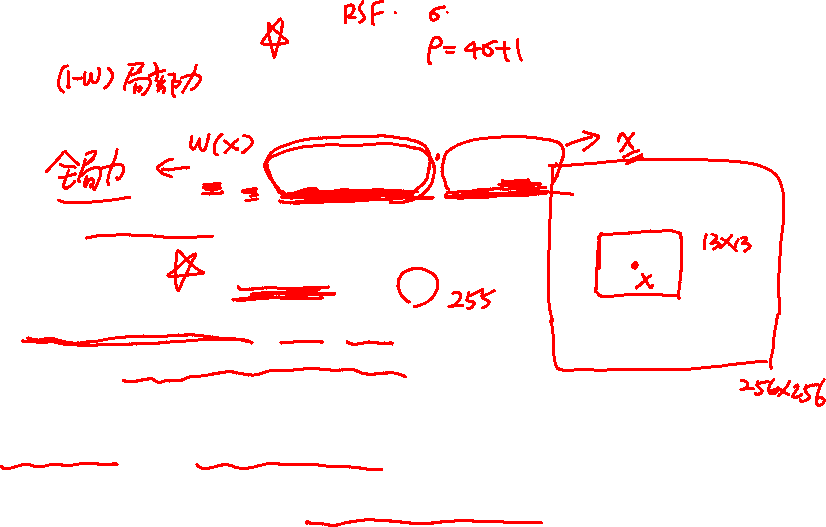 RSF. σ.
ρ=4σ+1
(1-W) 局部力
全局力 ← W(x)
x
13×13
x
255
256×256